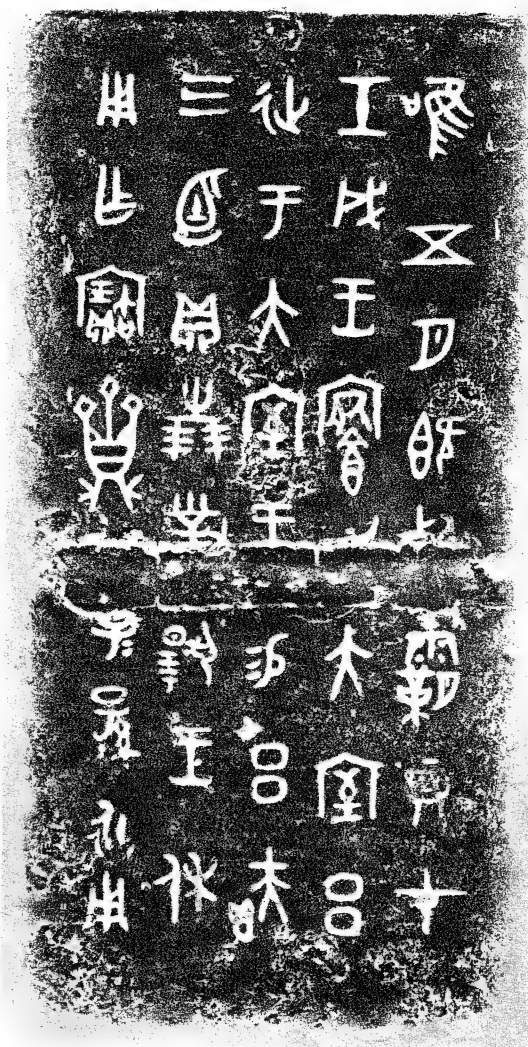 唯五月既死霸辰才
壬戌王大室呂
延于大室王易呂
三卣貝卅朋對揚王休
用乍寶齍子子孫孫永用